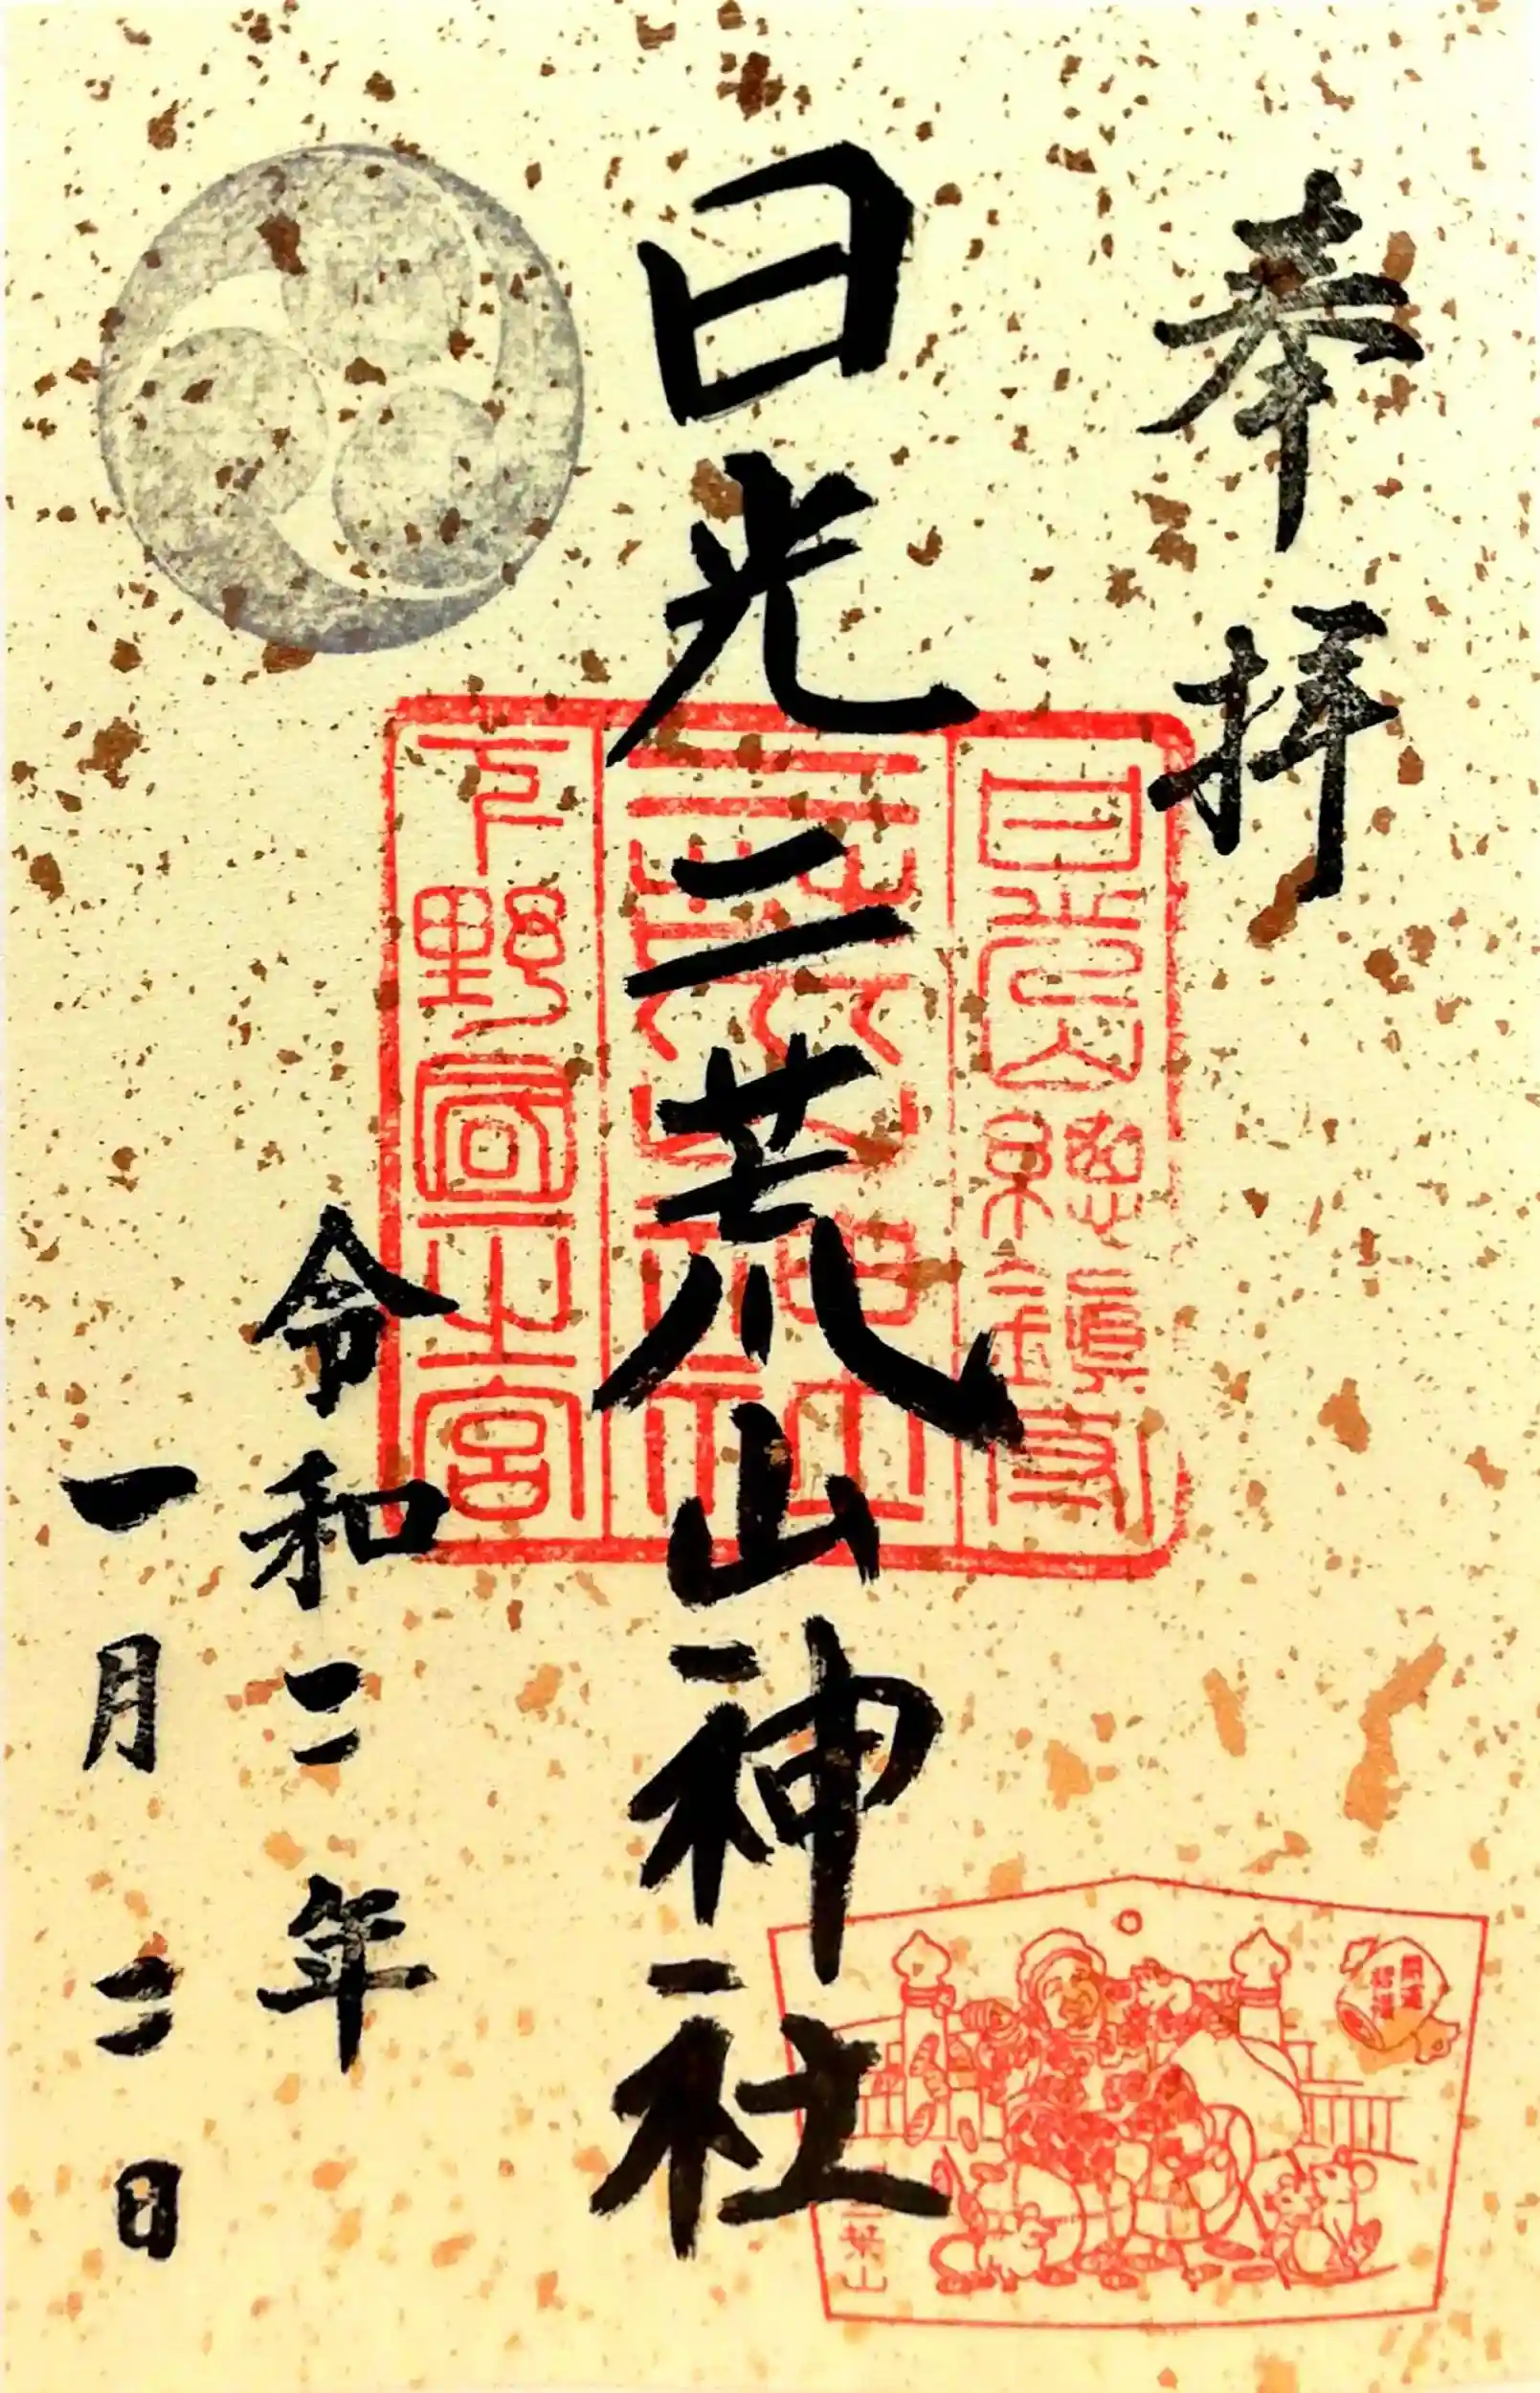 奉拝
日光山總鎮守
二荒山神社
下野國一之宮
日光二荒山神社
令和二年
一月三日